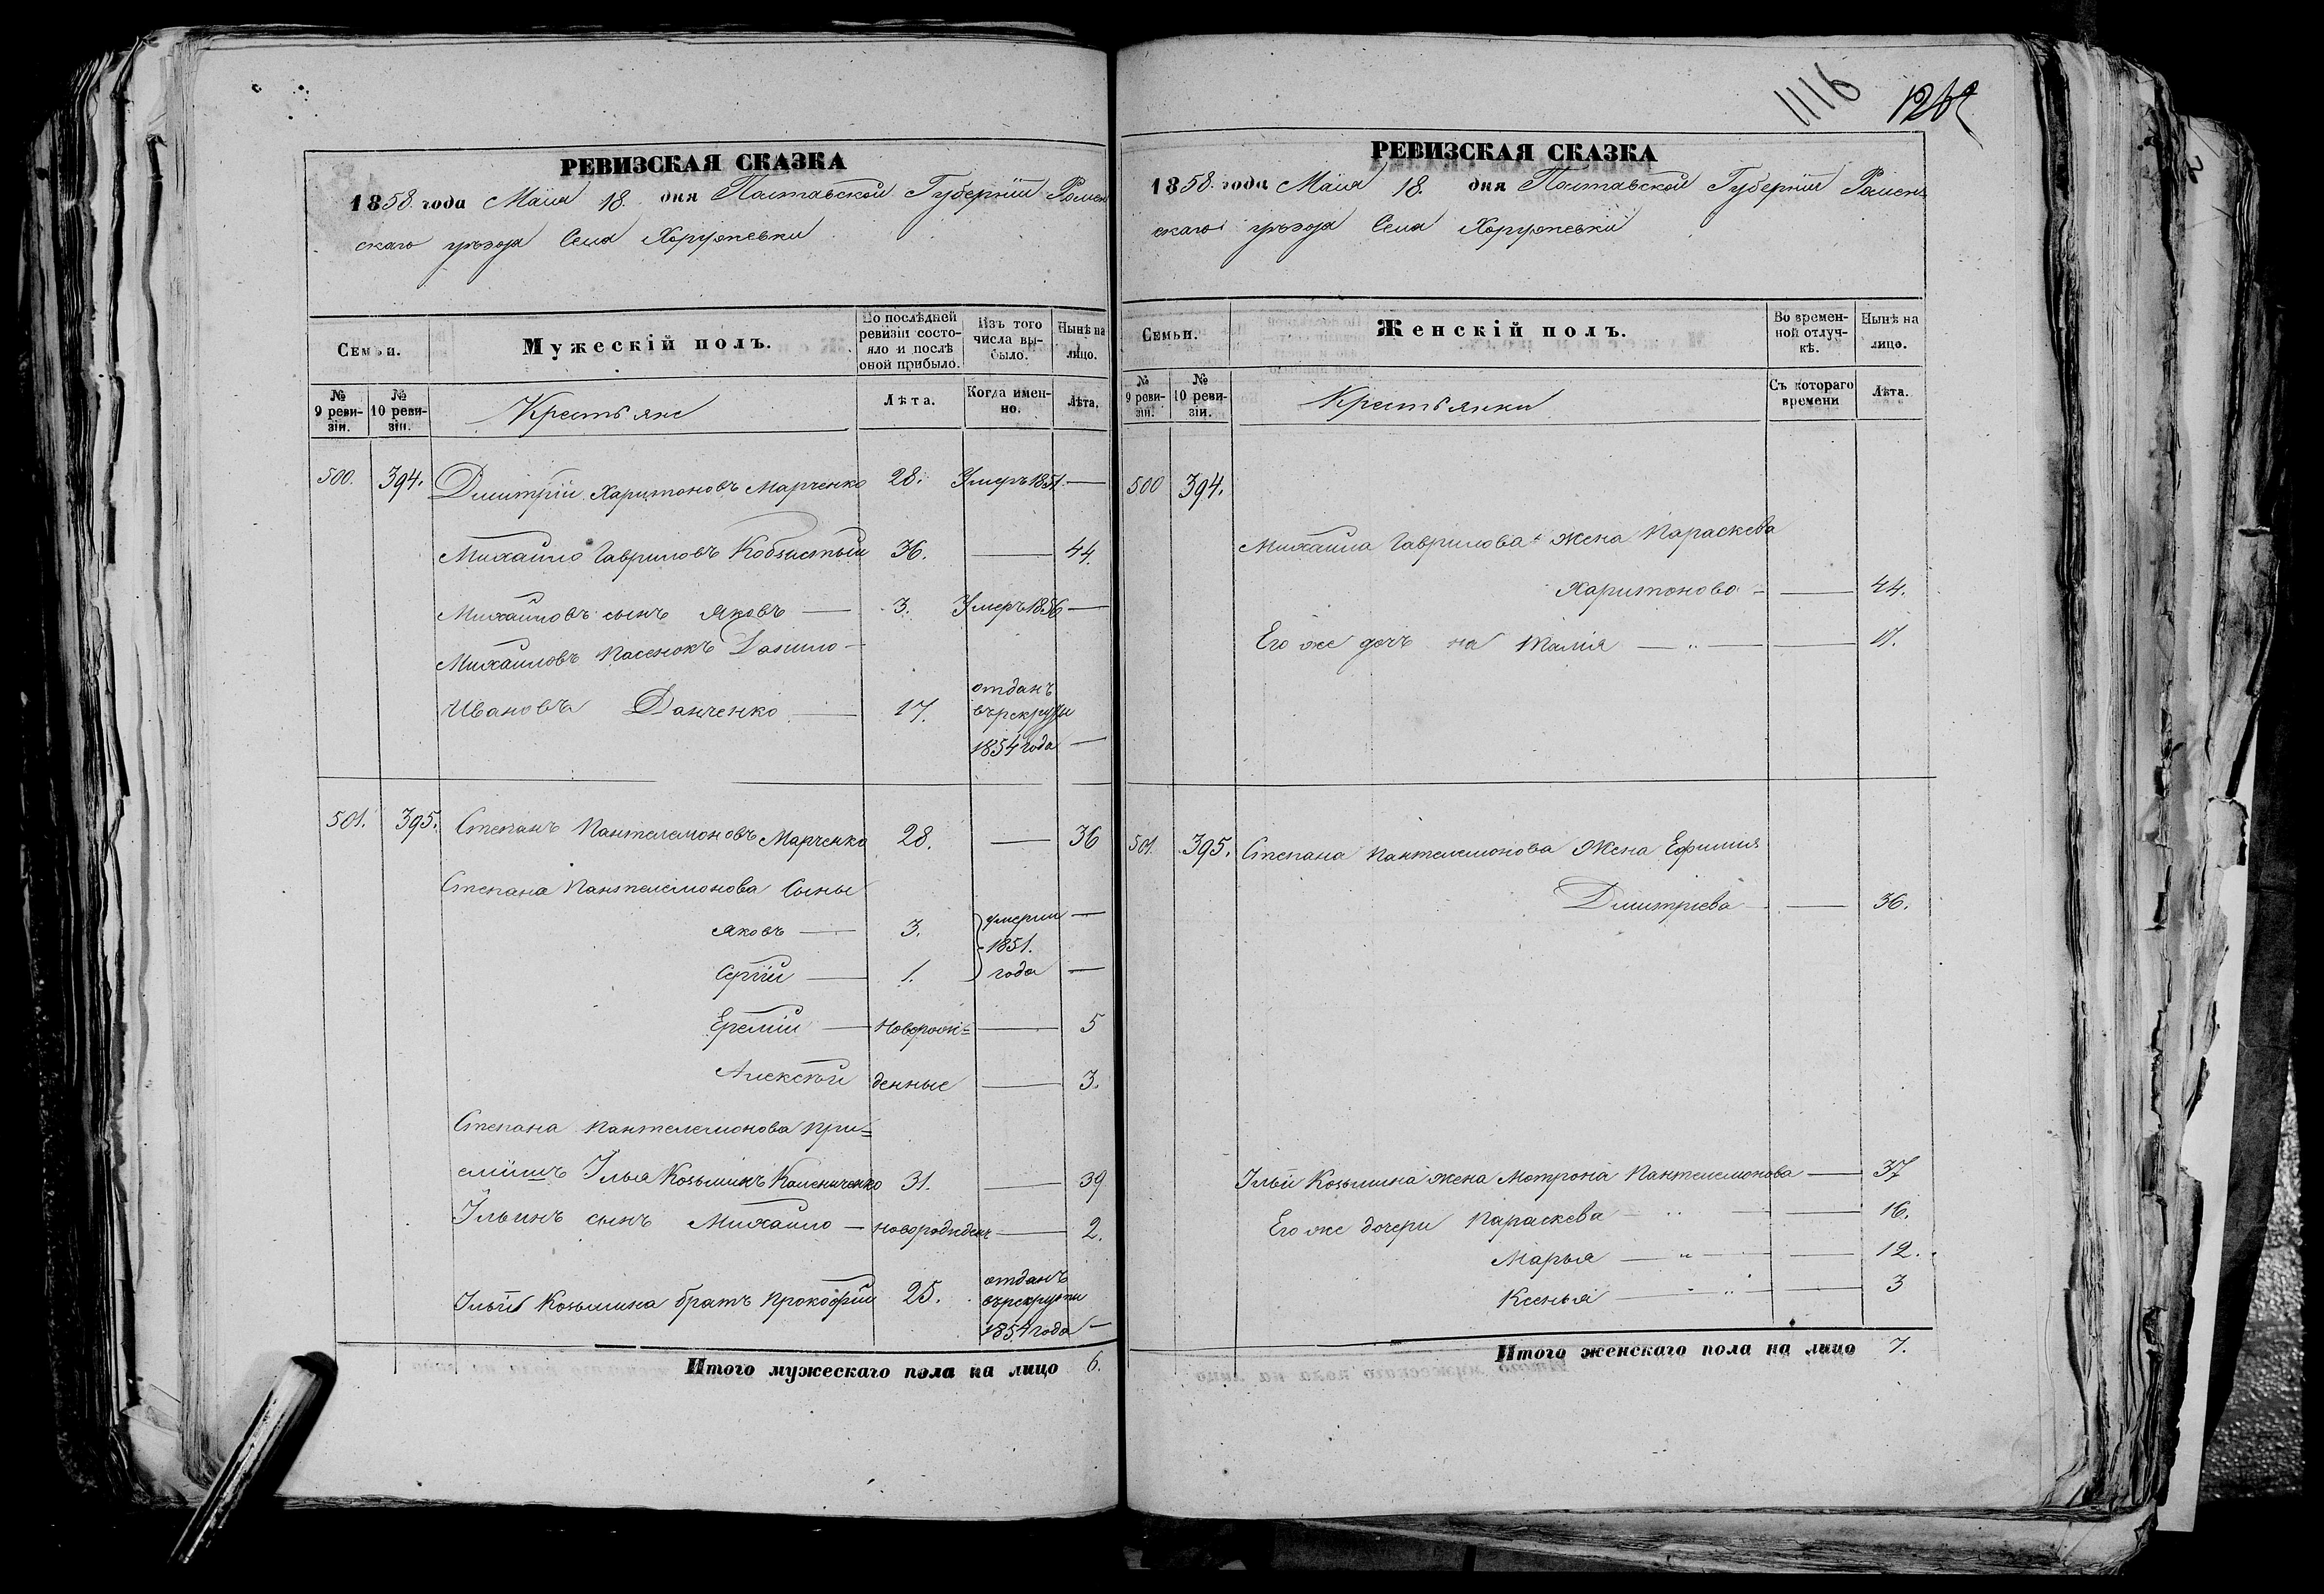 РЕВИЗСКАЯ СКАЗКА
1858 года Маія 18. дня Полтавской Губерніи Ромен
скаго уѣзда Села Хоружевки
Семьи.
Мужескій полъ.
По послѣдней ревизіи состояло и послѣ оной прибыло.
Изъ того числа выбыло.
Нынѣ на лицо.
№ 9 ревизіи.
№ 10 ревизіи.
Крестьяне
Лѣта.
Когда именно.
Лѣта.
500. 394. Дмитрій Харитоновъ Марченко 28. Умеръ 1851. —
Михайло Гавриловъ Кобзистый 36. — 44.
Михайловъ сынъ Яковъ — 3. Умеръ 1856 —
Михайловъ пасенокъ Данило —
Ивановъ Данченко — 17. отданъ
въ рекруты
1854 года —
501. 395. Степанъ Пантелемоновъ Марченко 28. — 36
Степана Пантелемонова Сыны
Яковъ — 3. умерли —
1851.
Сергій — 1. года —
Еремій — Новорож= — 5
Алексѣй денные — 3.
Степана Пантелемонова при=
емишъ Илья Козьминъ Калениченко 31. — 39
Ильинъ сынъ Михайло — новорожден — 2.
Ильи Козьмина братъ Прокофій 25. отданъ
въ рекруты
1854 года —
Итого мужескаго пола на лицо 6.
1116
РЕВИЗСКАЯ СКАЗКА
1858. года Маія 18. дня Полтавской Губерніи Ромен
скаго уѣзда Села Хоружевки
Семьи.
Женскій полъ.
Во временной отлучкѣ.
Нынѣ на лицо.
№ 9 ревизіи.
№ 10 ревизіи.
Крестьянки
Съ котораго времени
Лѣта.
500 394.
Михайла Гаврилова жена Параскева
Харитонова — 44.
Его же дочь на талія — " — 17.
501. 395. Степана Пантелемонова Жена Ефимія
Дмитріева — 36.
Ильи Козьмина жена Мотрона Пантелемонова — 37
Его же дочери Параскева — " — 16.
Марья — " — 12.
Ксенья — " — 3
Итого женскаго пола на лицо 7.